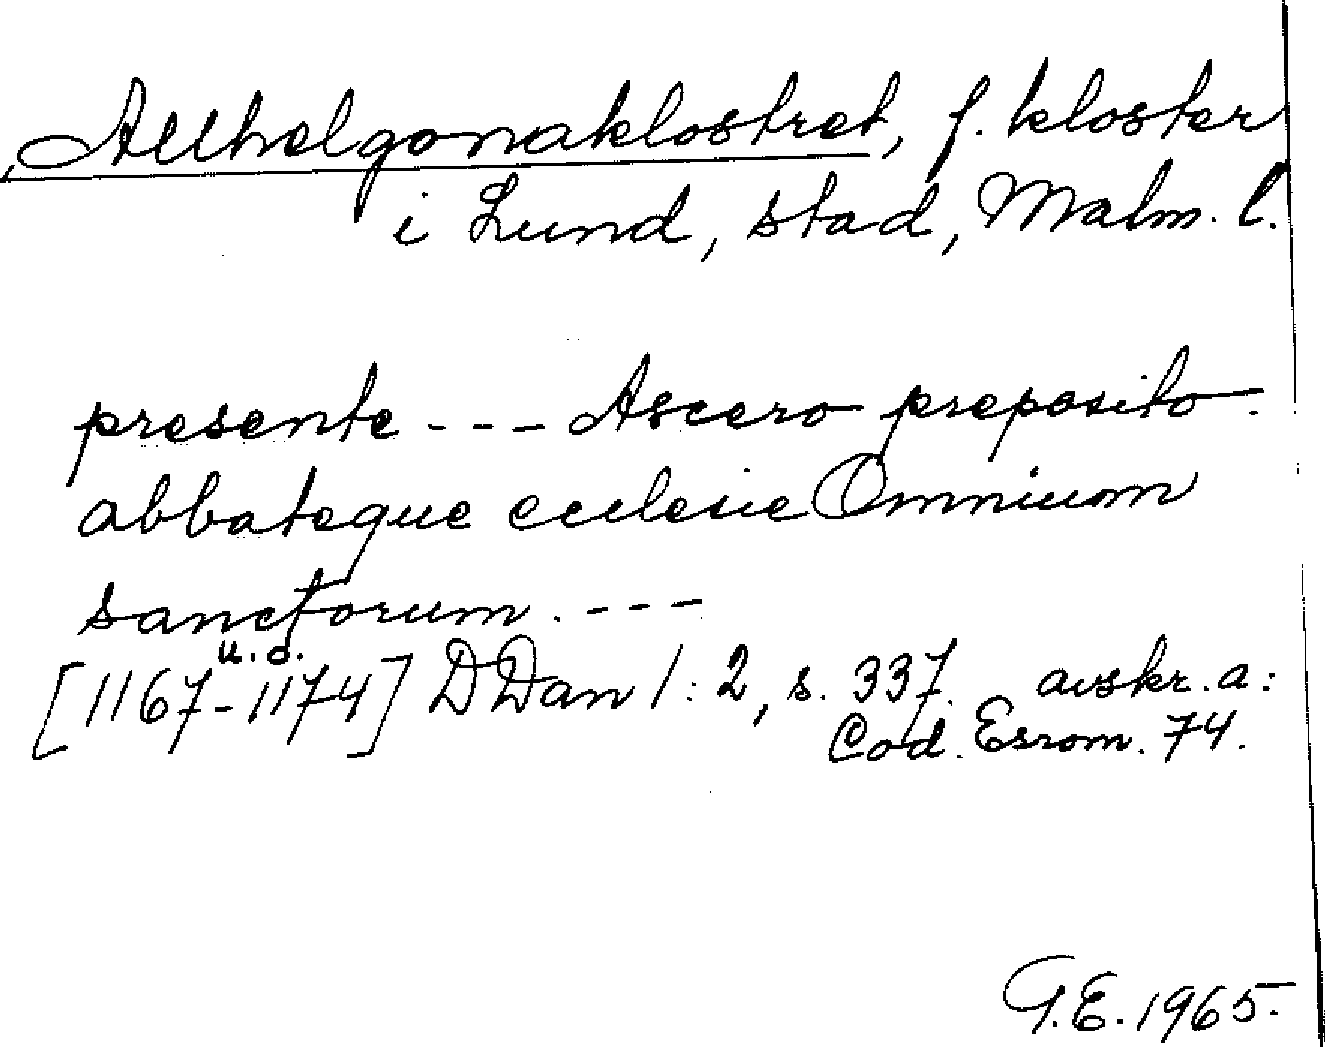 Allhelgonaklostret, f. kloster
i Lund, stad, Malm. l.
presente --- Ascero preposito
abbateque ecclesie Omnium
sanctorum. ---
u. d.
[1167-1174] DDan 1:2, s. 337. avskr. a:
Cod. Esrom. 74.
G.E. 1965.